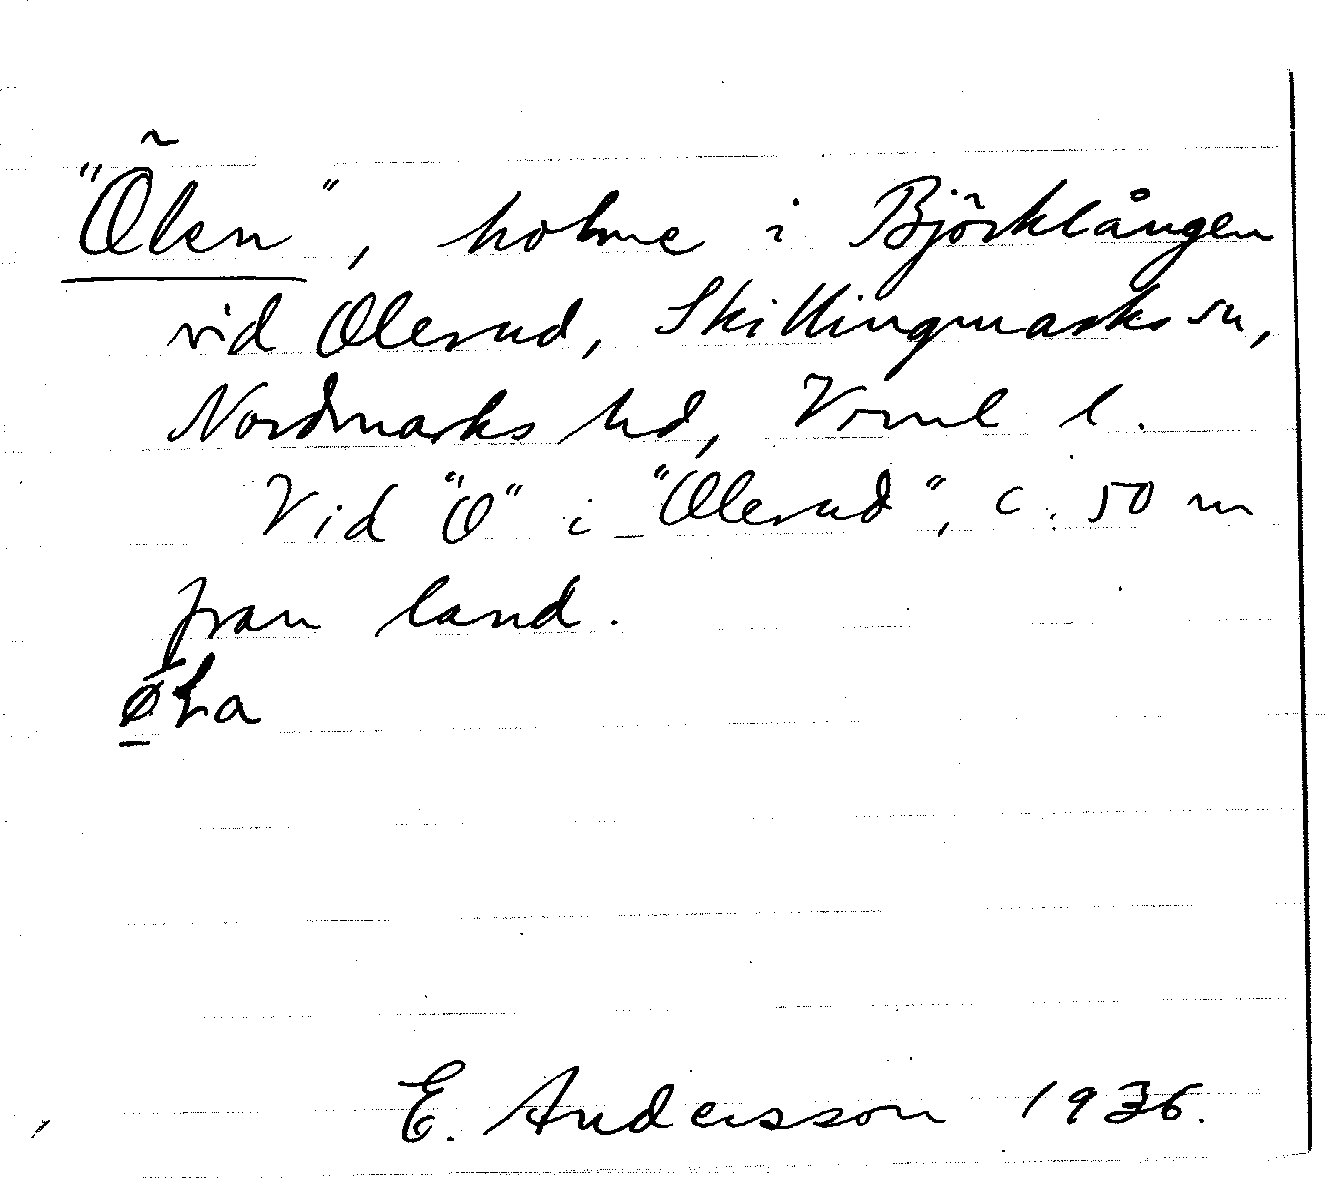 "Ölen", holme i Björklången
vid Olerud, Skillingmarks sn,
Nordmarks hd, Vrml l.
Vid "O" i "Olerud", c. 50 m
fran land.
øLa
E. Andersson 1936.